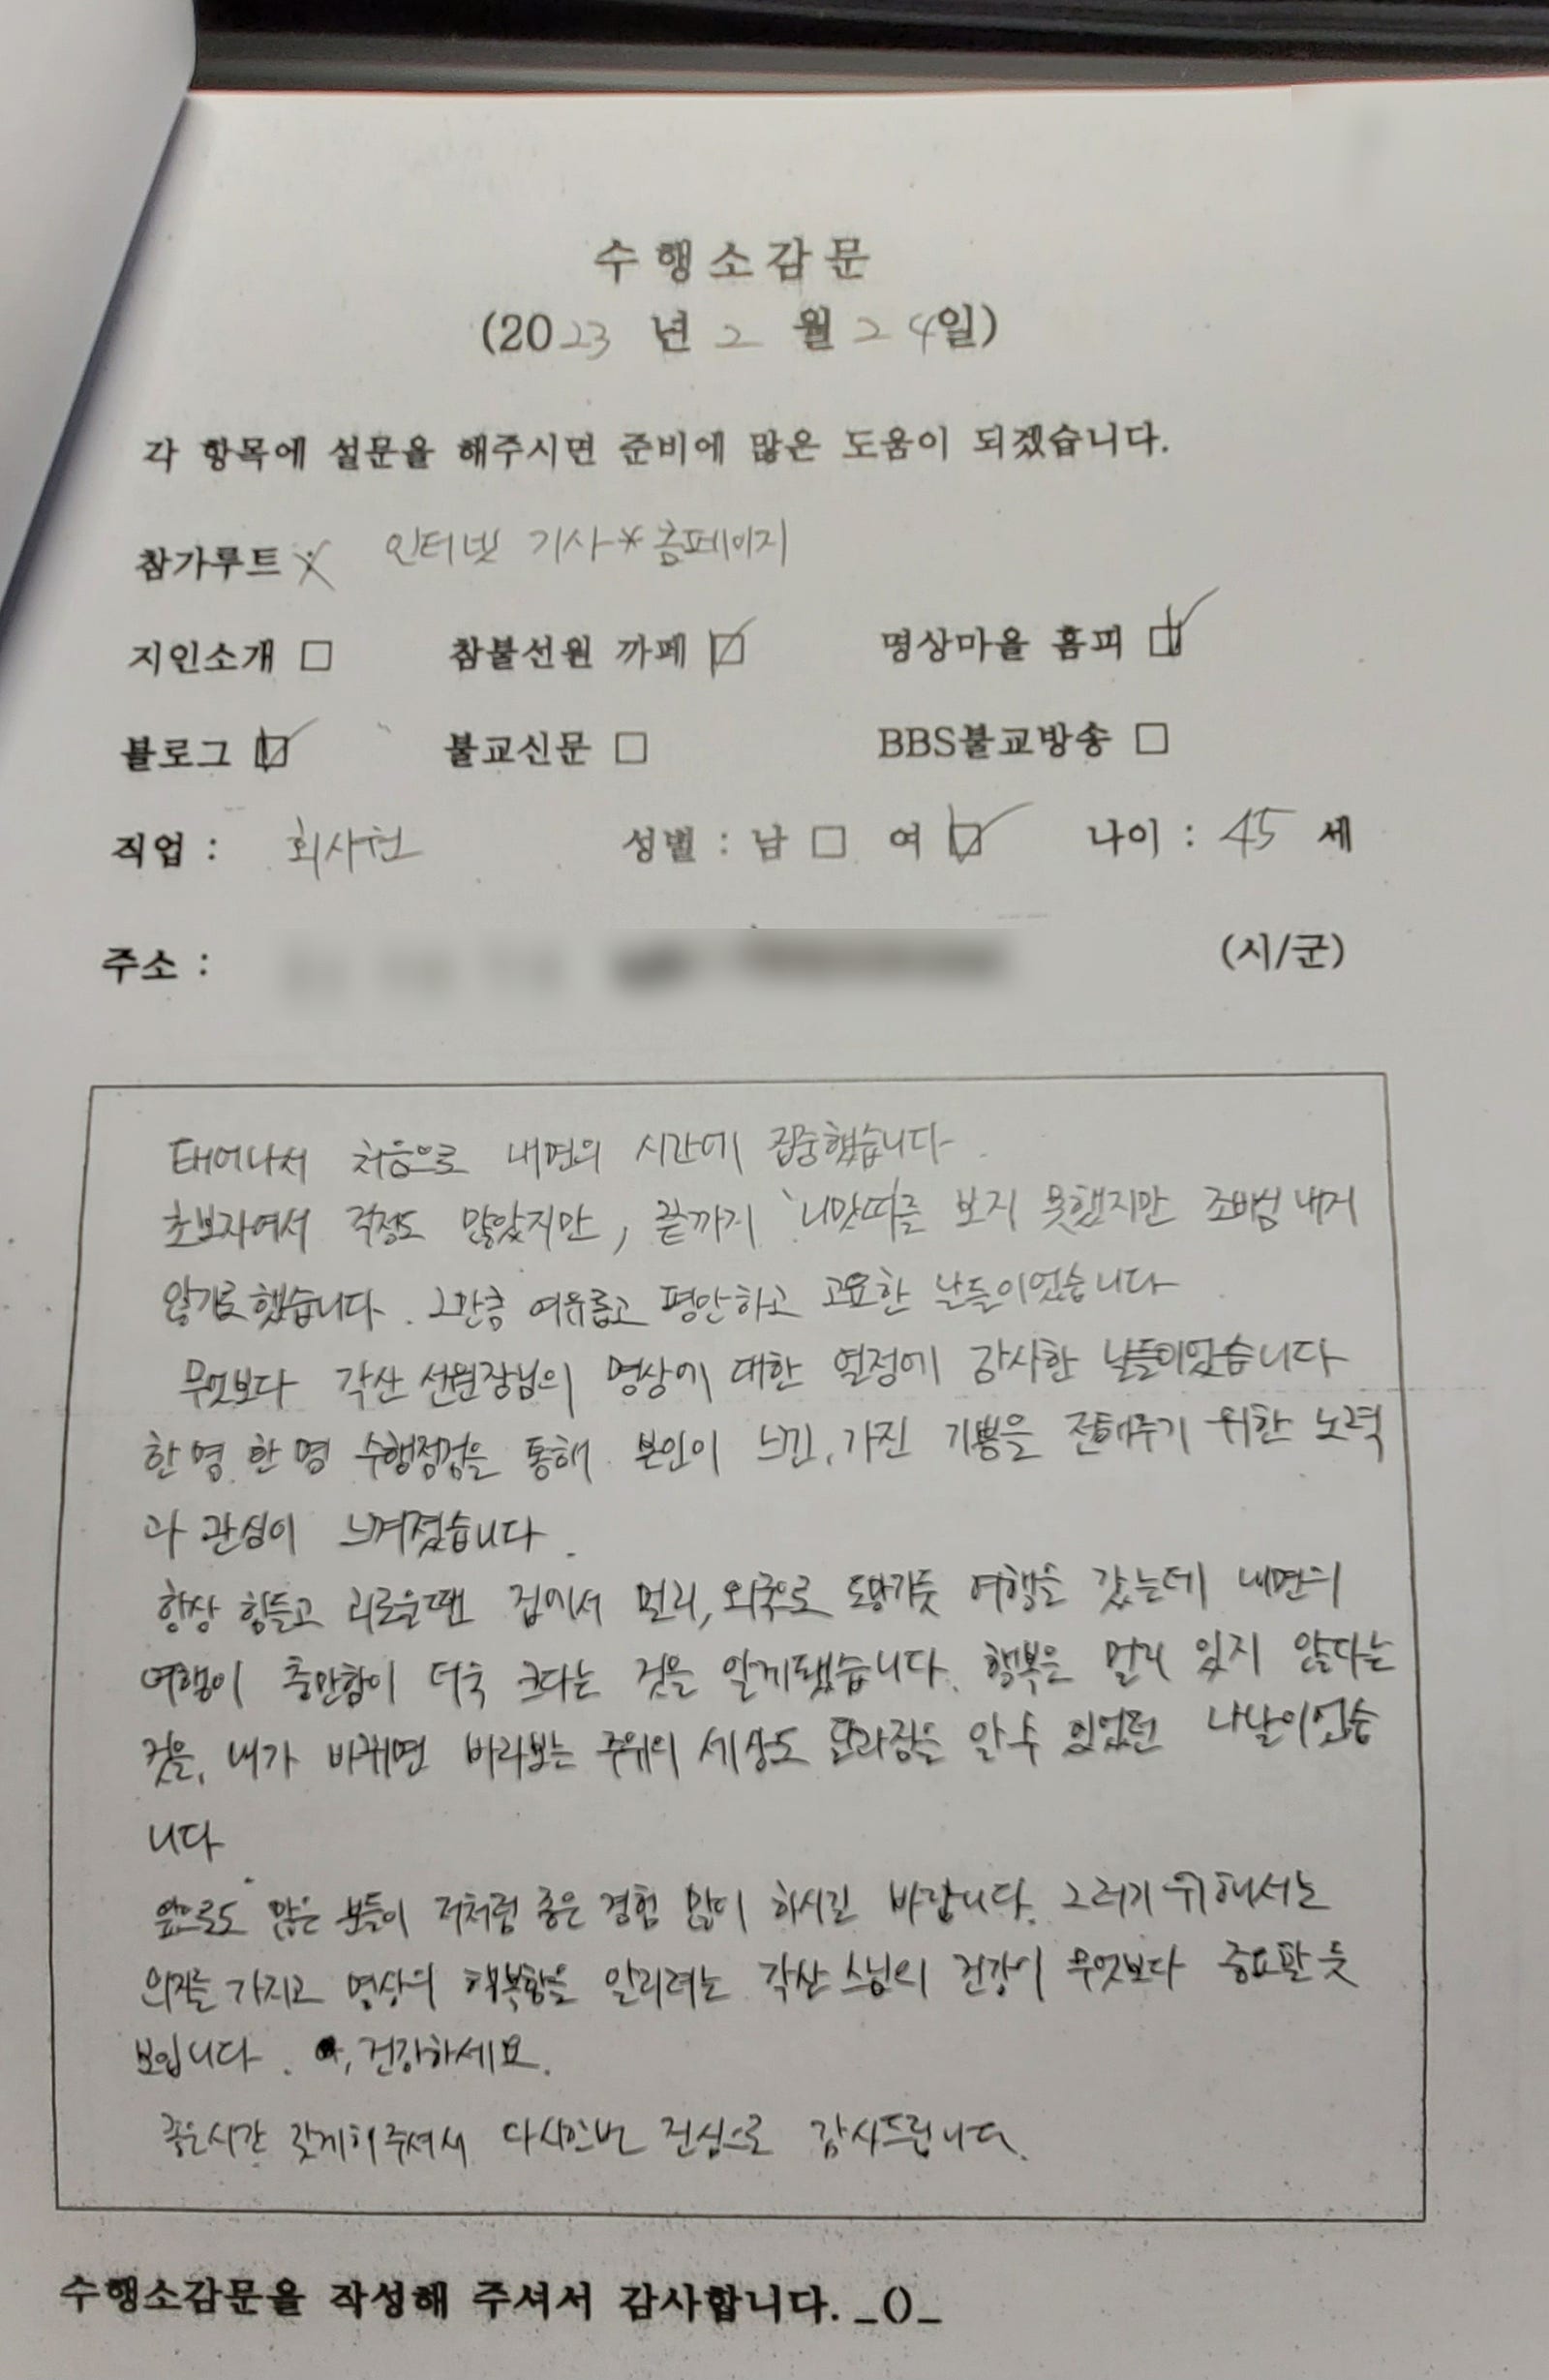 수행소감문
(2023 년 2 월 24일)
각 항목에 설문을 해주시면 준비에 많은 도움이 되겠습니다.
참가루트 X 인터넷 기사 * 홈페이지
지인소개 □ 참불선원 까페 ☑ 명상마을 홈피 ☑
블로그 ☑ 불교신문 □ BBS불교방송 □
직업 : 회사원 성별 : 남 □ 여 ☑ 나이 : 45 세
주소 : (시/군)
태어나서 처음으로 내면의 시간에 집중했습니다.
초보자여서 걱정도 많았지만, 끝까지 '니밋따를 보지 못했지만 조바심 내지
않기로 했습니다. 그만큼 여유롭고 평안하고 고요한 날들이었습니다.
무엇보다 각산 선원장님의 명상에 대한 열정에 감사한 날들이었습니다
한명 한명 수행점검을 통해 본인이 느낀, 가진 기쁨을 전해주기 위한 노력
과 관심이 느껴졌습니다.
항상 힘들고 괴로울땐 집에서 멀리, 외국으로 도망가듯 여행을 갔는데 내면의
여행이 충만함이 더욱 크다는 것을 알게됐습니다. 행복은 멀리 있지 않다는
것을, 내가 바뀌면 바라보는 주위의 세상도 달라짐을 알 수 있었던 나날이었습
니다.
앞으로도 많은 분들이 저처럼 좋은 경험 많이 하시길 바랍니다. 그러기 위해서는
의지를 가지고 명상의 행복함을 알리려는 각산 스님의 건강이 무엇보다 중요할 듯
보입니다. 건강하세요.
좋은시간 갖게해주셔서 다시한번 진심으로 감사드립니다.
수행소감문을 작성해 주셔서 감사합니다. _()_